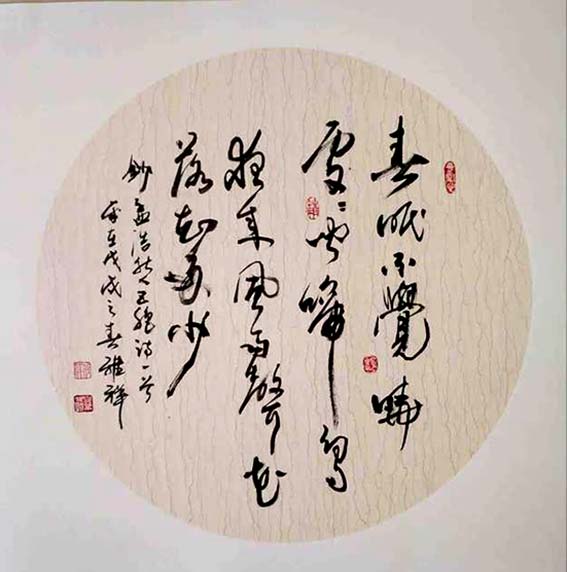 春眠不覺曉
處〻聞啼鳥
夜来風雨聲花
落知多少
鈔孟浩然五絶诗一首
岁在戊戌之春